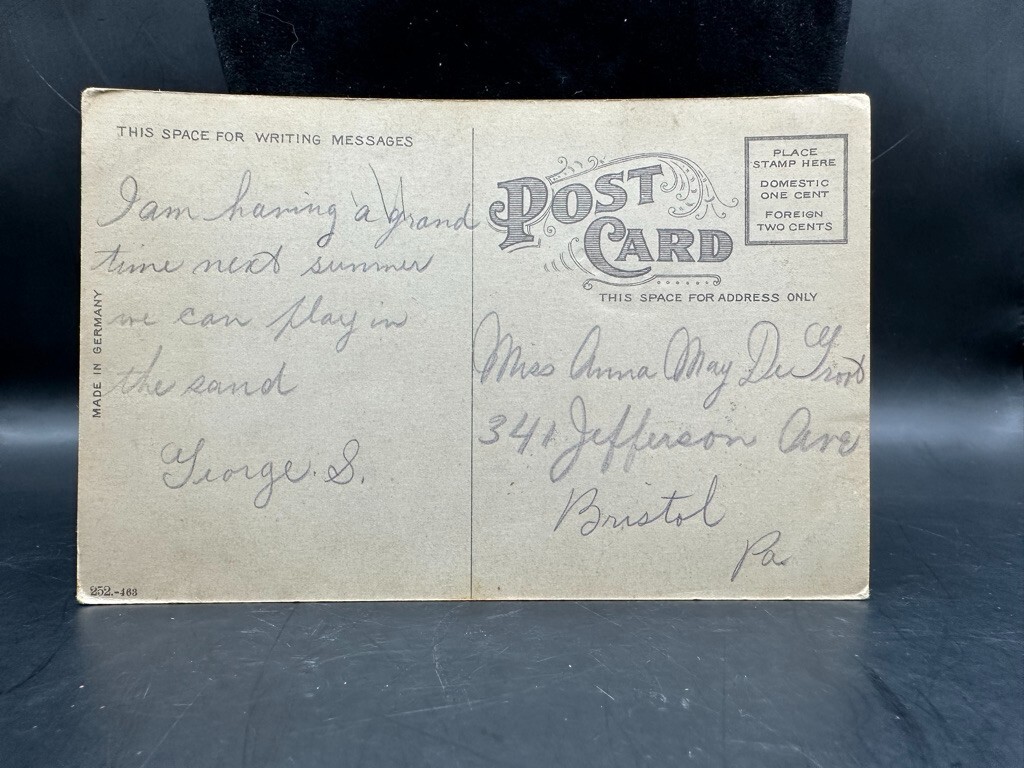 THIS SPACE FOR WRITING MESSAGES
I am having a grand
time next summer
we can play in
the sand
George. S.
MADE IN GERMANY
252.-463
POST
CARD
PLACE
STAMP HERE
DOMESTIC
ONE CENT
FOREIGN
TWO CENTS
THIS SPACE FOR ADDRESS ONLY
Miss Anna May De Groot
341 Jefferson Ave
Bristol
Pa.